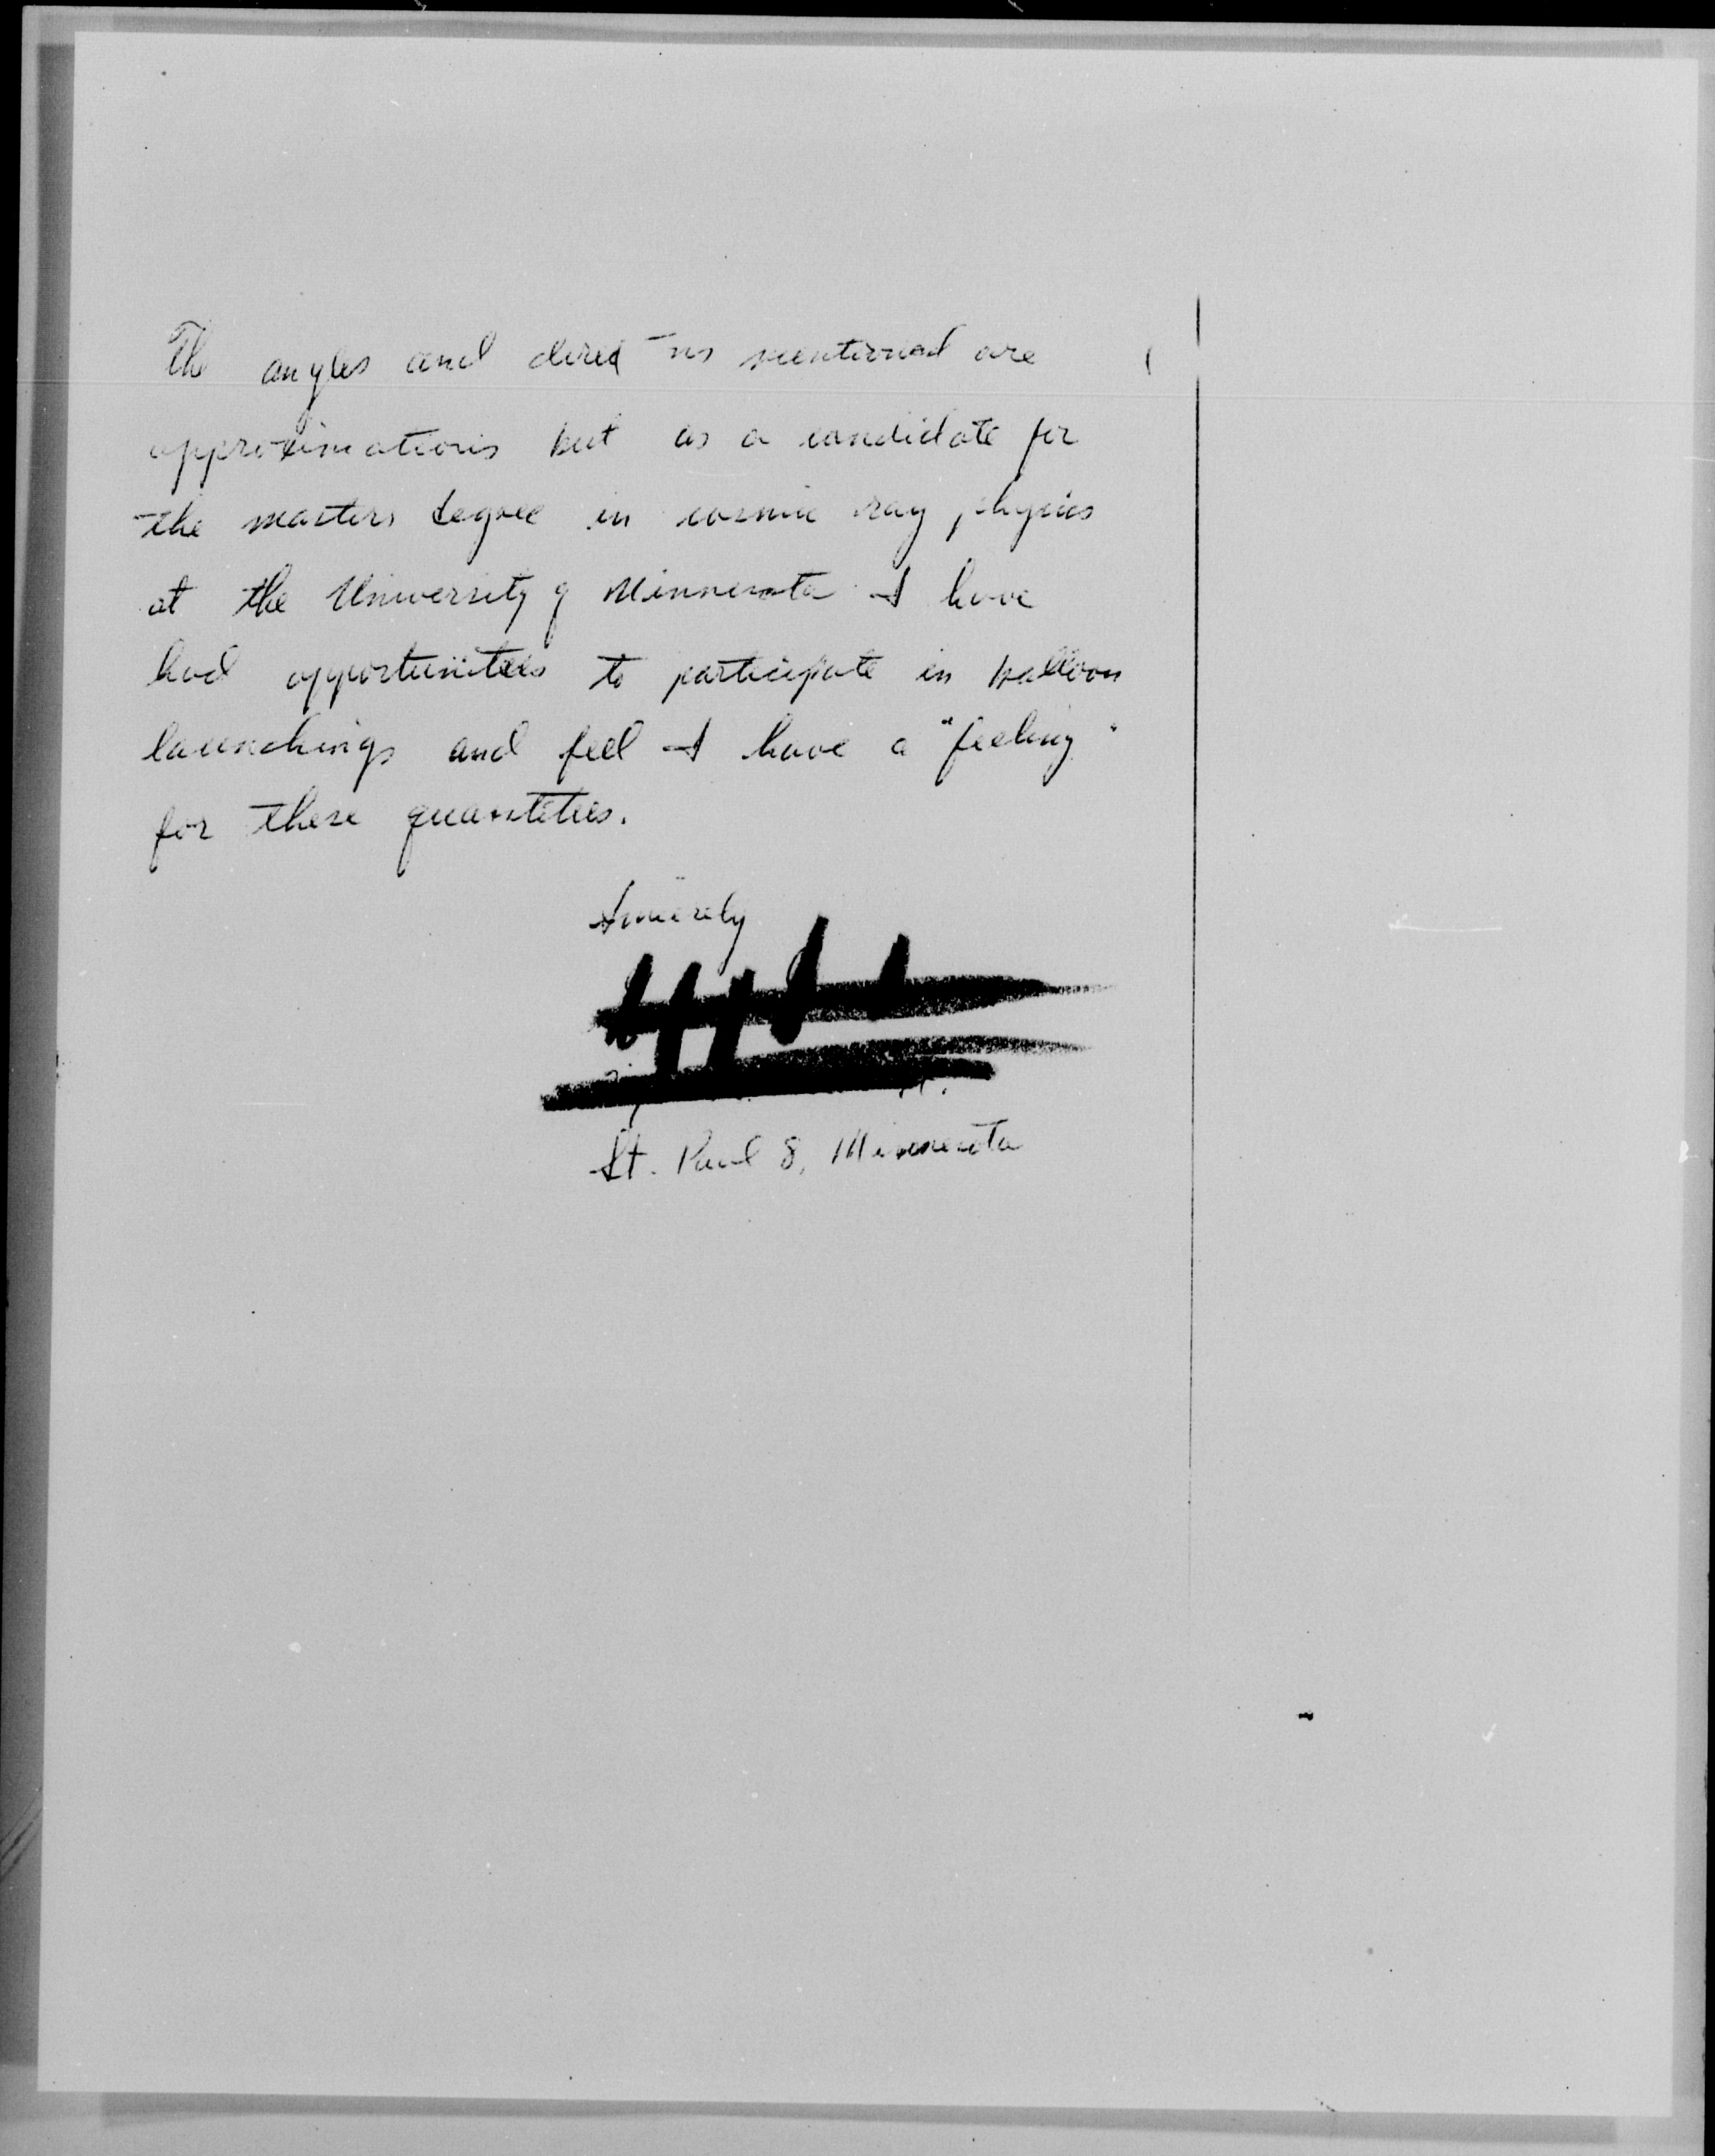 The angles and directions mentioned are
approximations but as a candidate for
the masters degree in cosmic ray physics
at the University of Minnesota I have
had opportunities to participate in balloon
launchings and feel I have a "feeling"
for these quantities.
Sincerely
St. Paul 8, Minnesota